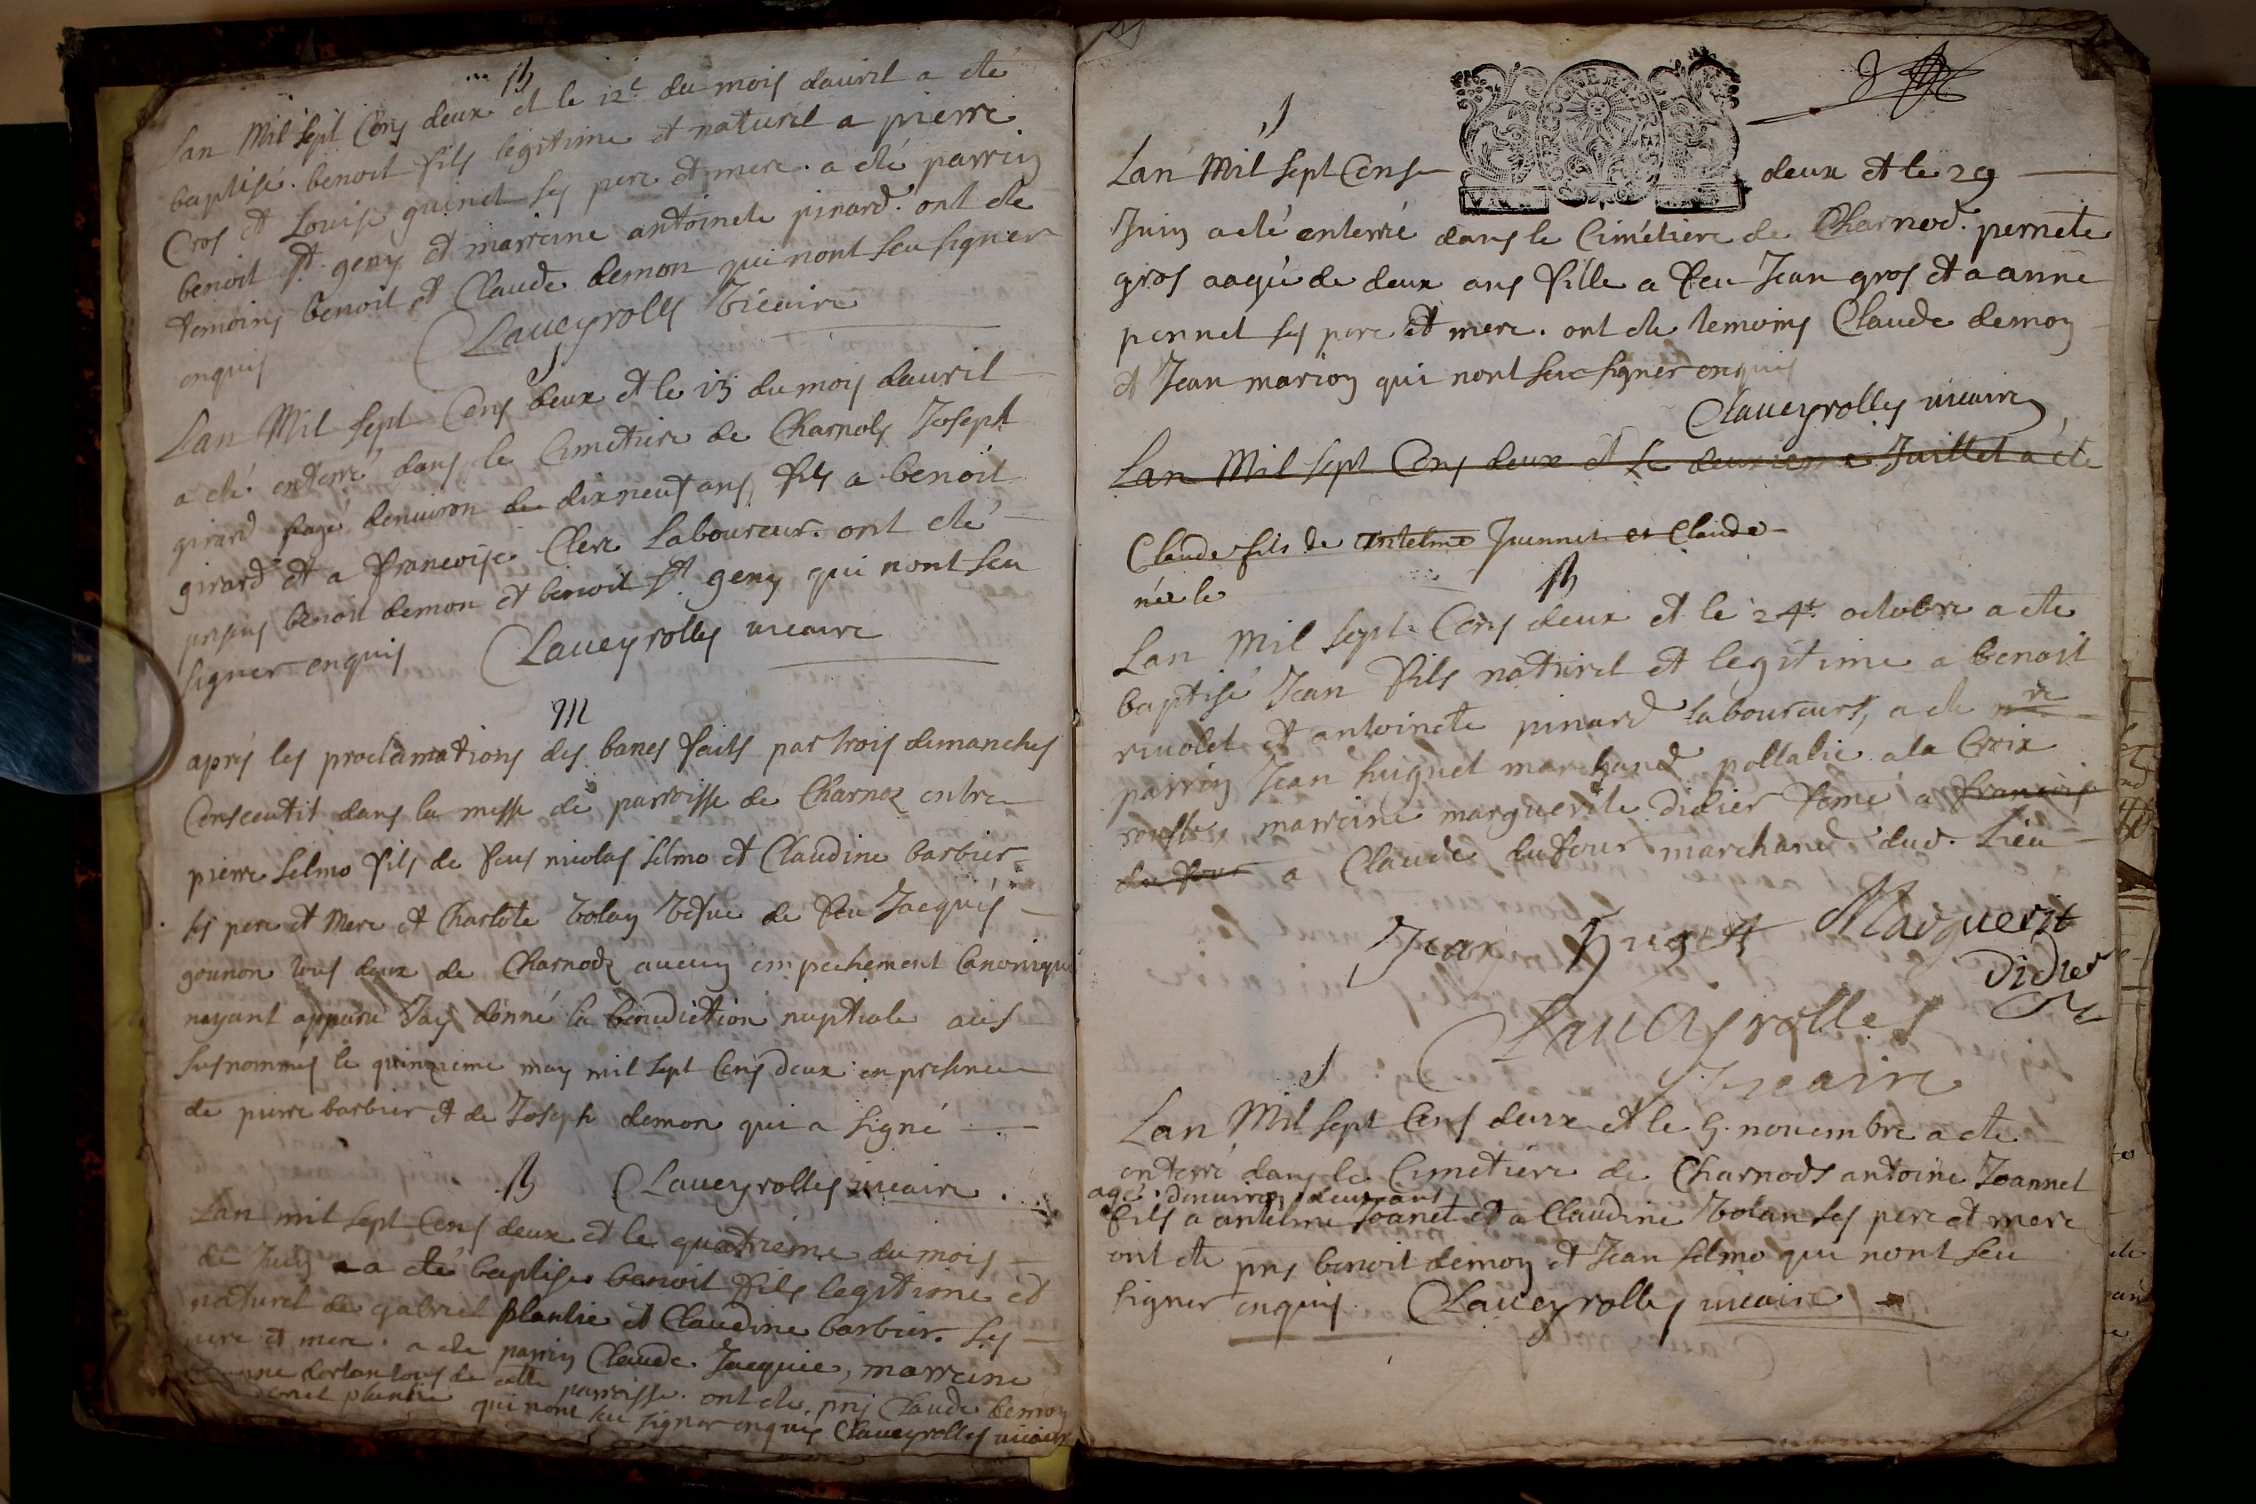 B
Lan Mil Sept Cens deux et le 12e du mois dauril a eté
baptisé. benoit fils legitime et naturel a pierre
Cros et Louise guinet ses pere et mere. a eté parrin
benoit st. geny et marreine antoinete pinard. ont ete
temoins benoit et Claude demon qui nont seu signer
enquis Laueyrolles Vicaire
S
Lan Mil Sept Cens deux et le 15 du mois dauril
a eté enterré dans le Cimetiere de Charnols Joseph
girard aagé denuiron de dix neuf ans, fils a benoit
girard et a francoise Clerc Laboureur. ont eté
presens benoit demon et benoit st. geny qui nont seu
signer enquis Laueyrolles uicaire
M
aprés les proclamations des bancs faits par trois dimanches
Consecutif dans la messe de parroisse de Charnoz entre
pierre Selmo fils de feus nicolas selmo et Claudine barbier
ses pere et Mere et Charlote Volan Vefue de feu Jacques
gounon tous deux de Charnodz aucun empechement Canonique
nayant apparu Jay donné la benediction nuptiale aus
susnommes le quinzieme may mil sept Cens deux en presence
de pierre barbier et de Joseph demon qui a signé
B Laueyrolles uicaire.
Lan mil sept Cens deux et le quatrieme du mois
de Juin a a eté baptise benoit fils legitime et
naturel de gabriel plantie et Claudine barbier. ses
pere et mere. a ete parrin Claude Jacquie, marreine
dorlan tous de cette parroisse. ont ete pns Claude demon
plantie qui nont seu signer enquis Laueyrolles uicaire
S
Lan Mil Sept Cens deux et le 29
Juin a eté enterré dans le Cimétiere de Charnod. pernete
gros aagée de deux ans fille a feu Jean gros et a anne
pennet ses pere et mere. ont ete temoins Claude demon
et Jean marion qui nont seu signer enquis
Laueyrolles uicaire
Lan Mil Sept Cens deux et Le deuxieme Juillet a ete
Claude fils de antelme Juennet et Claude
née le
B
Lan Mil Sept Cens deux et le 24e. octobre a ete
baptisé Jean fils naturel et legitime a benoit
riuolet et antoinete pinard laboureurs, a ete
parrin Jean huguet marchand pollalie a la Croix
rousse marreine marguerite Didier feme a francois
du four a Claude dufour marchand dud. Lieu
Jean huget Marguerit
Didier
Laueyrolles
Vicaire
S
Lan Mil Sept Cens deux et le 5. nouembre a ete
enterré dans le Cimetiere de Charnods antoine Joannet
agé denuiron deux ans
fils a antelme Joanet et a Claudine Volan ses pere et mere
ont ete pns benoit demon et Jean selmo qui nont seu
signer enquis Laueyrolles uicaire